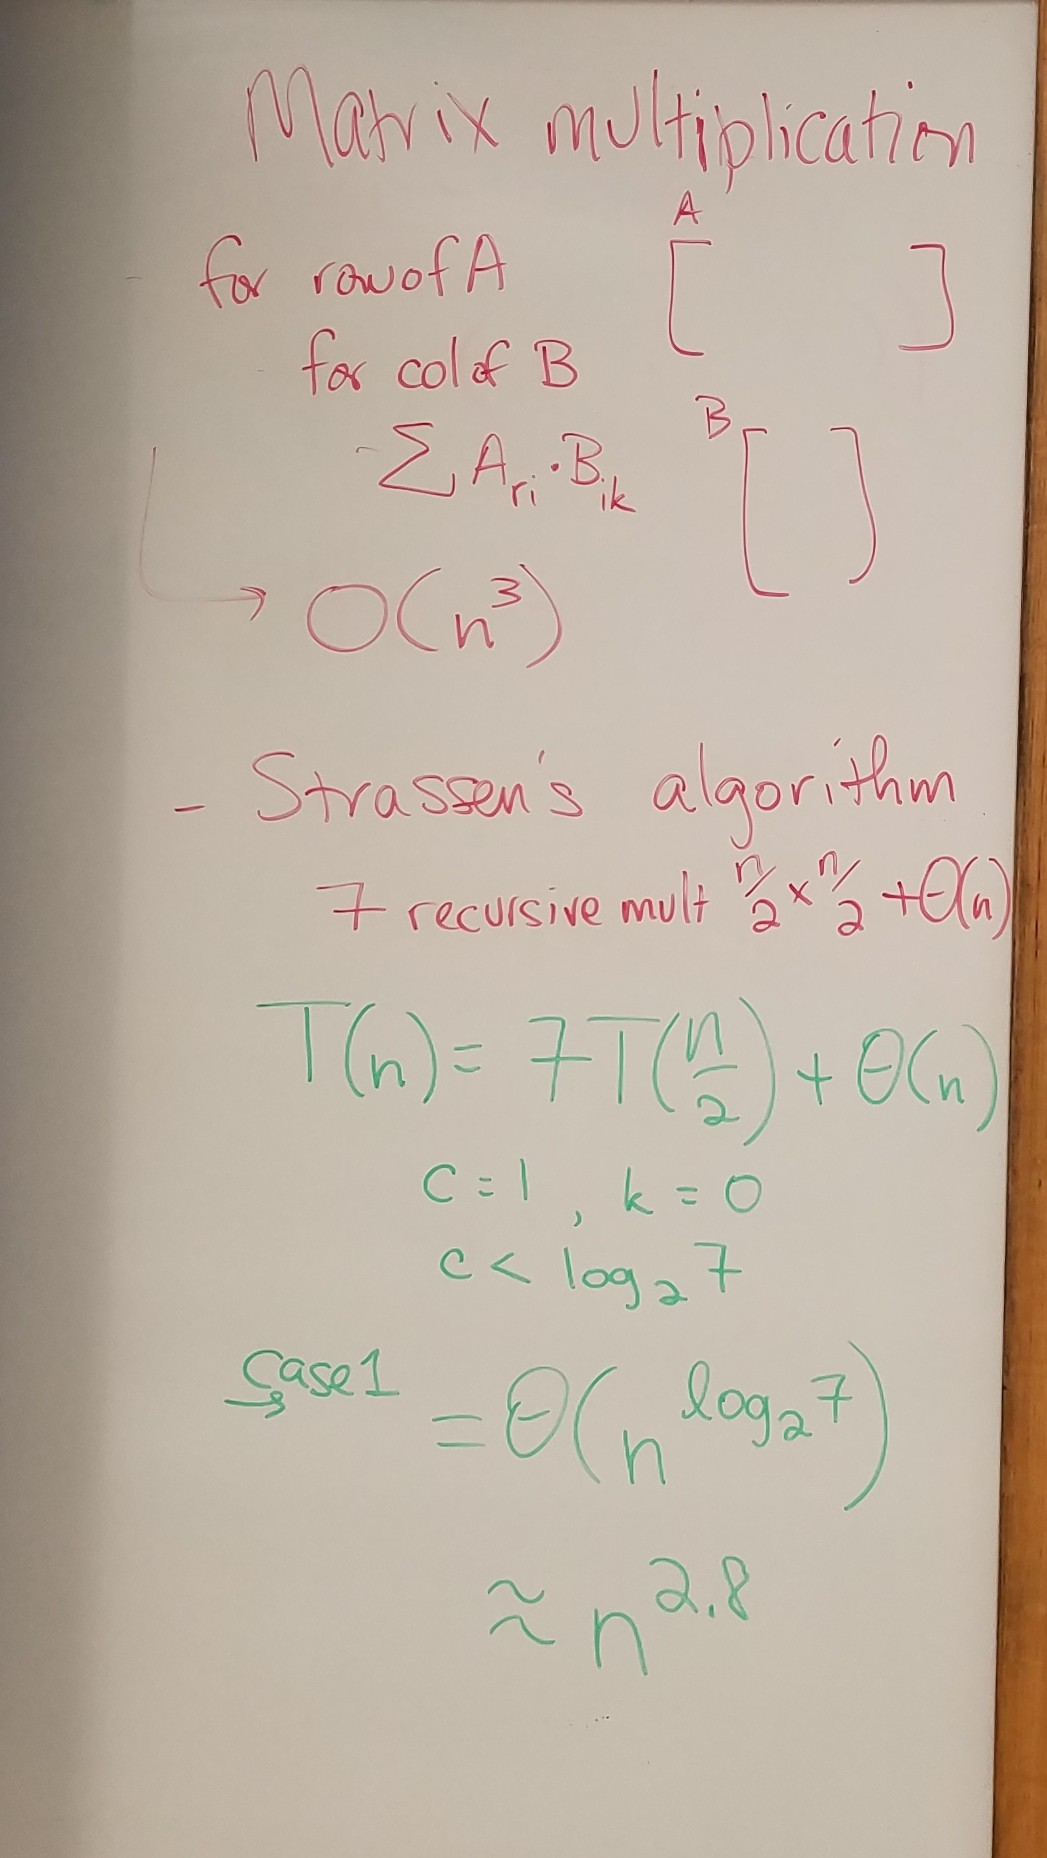 Matrix multiplication
A
for row of A
for col of B
B
- Σ A_ri · B_ik
→ O(n³)
- Strassen's algorithm
7 recursive mult n/2 × n/2 + Θ(n)
T(n) = 7T(n/2) + Θ(n)
c = 1 , k = 0
c < log₂ 7
Case 1
= Θ(n^log₂ 7)
≈ n^2.8